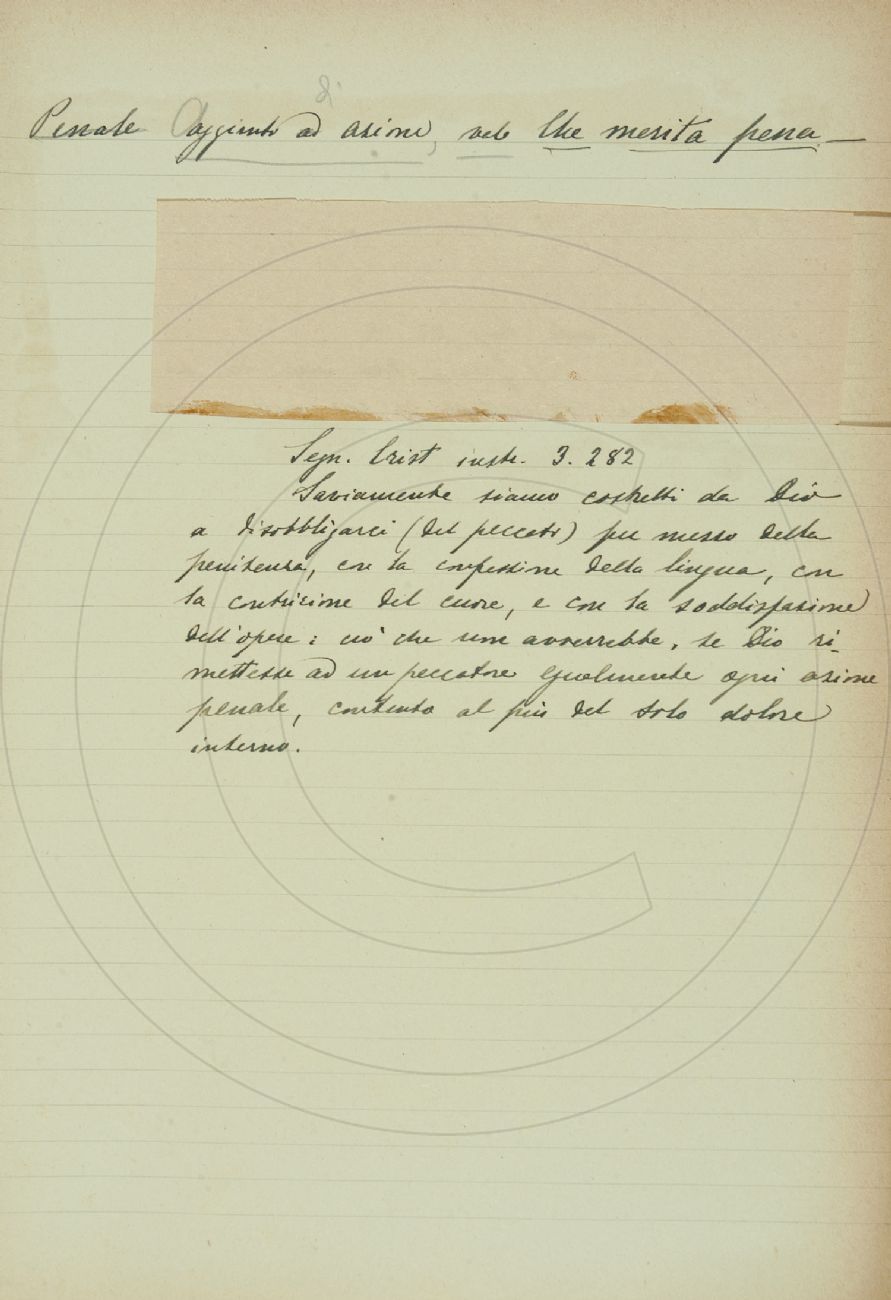 di
Penale Aggiunto ad azione, vale Che merita pena. —
Segn. Crist instr. 3. 282
Saviamente siamo costretti da Dio
a disobbligarci (del peccato) per mezzo della
penitenza, con la confessione della lingua, con
la contrizione del cuore, e con la soddisfazione
dell'opere: ciò che non avverrebbe, se Dio ri-
mettesse ad un peccatore egualmente ogni azione
penale, contento al più del solo dolore
interno.